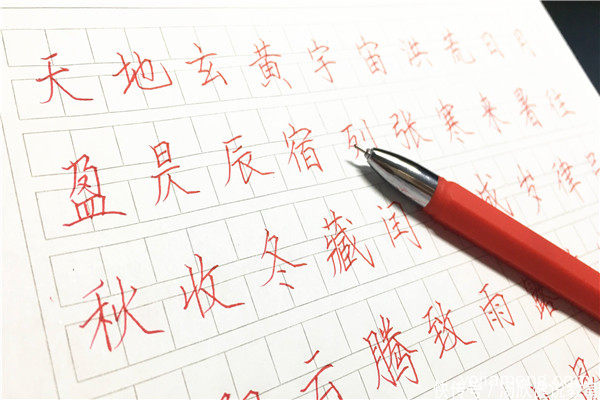 天地玄黄宇宙洪荒日月
盈昃辰宿列张寒来暑往
秋收冬藏闰成岁律
云腾致雨露